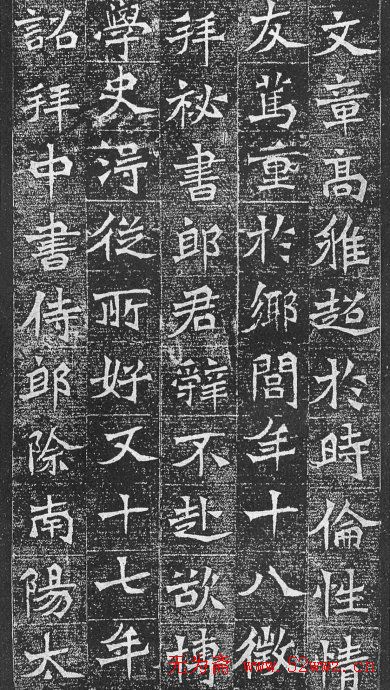 文章高雅超於時倫性情
友篤重於鄉閭年十八徵
拜祕書郎君辭不赴欲博
學史淂從所好又十七年
詔拜中書侍郎除南陽太
无为斋 www.52wwz.cn